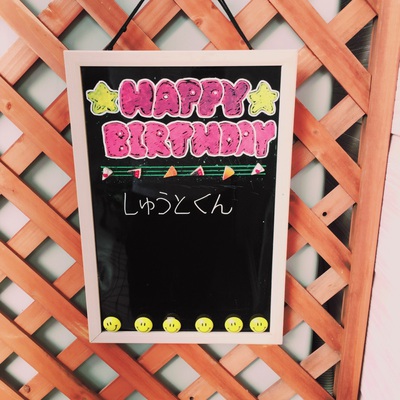 HAPPY
BIRTHDAY
しゅうとくん